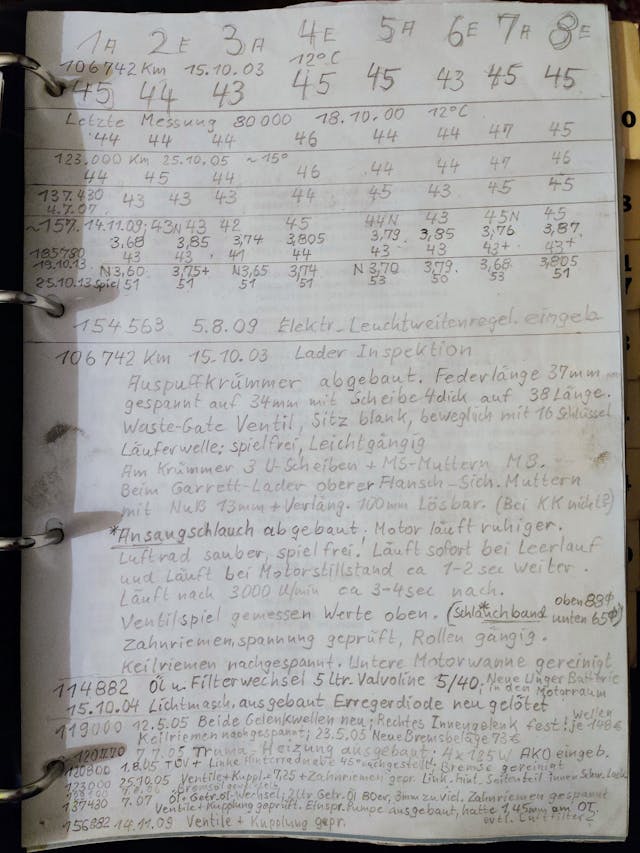 1A 2E 3A 4E 5A 6E 7A 8E
106742 Km 15.10.03 12°C
45 44 43 45 45 43 45 45
Letzte Messung 80000 18.10.00 12°C
44 44 44 46 44 44 47 45
123.000 Km 25.10.05 ~15°
44 45 44 46 44 44 47 46
137.430 43 43 43 44 45 43 45 45
4.7.07
~157. 14.11.09; 43N 43 42 45 44N 43 45N 45
3,68 3,85 3,74 3,805 3,79 3,85 3,76 3,87
185780 43 43 41 44 43 43 43+ 43+
19.10.13 N3,60 3,75+ N3,65 3,74 N3,70 3,79 3,68 3,805
25.10.13 Spiel 51 51 51 51 53 50 53 51
154563 5.8.09 Elektr. Leuchtweitenregel. eingeb
106742 Km 15.10.03 Lader Inspektion
Auspuffkrümmer abgebaut. Federlänge 37mm
gespannt auf 34mm mit Scheibe 4dick auf 38 Länge.
Waste-Gate Ventil, Sitz blank, beweglich mit 16 Schlüssel
Läuferwelle; spielfrei, Leichtgängig
Am Krümmer 3 U-Scheiben + MS-Muttern M8.
Beim Garrett-Lader oberer Flansch-Sich. Muttern
mit Nuß 13mm + Verläng. 100mm Lösbar. (Bei KK nicht?)
*Ansaugschlauch abgebaut! Motor läuft ruhiger.
Luftrad sauber, spielfrei! Läuft sofort bei Leerlauf
und Läuft bei Motorstillstand ca 1-2 sec weiter.
Läuft nach 3000 U/min ca 3-4 sec nach.
Ventilspiel gemessen Werte oben. (Schlauchband oben 88φ unten 65φ)
Zahnriemenspannung geprüft, Rollen gängig.
Keilriemen nachgespannt. Untere Motorwanne gereinigt
114882 Öl u. Filterwechsel 5 Ltr. Valvoline 5/40; Neue Unger Batterie
in den Motorraum
15.10.04 Lichtmasch. ausgebaut Erregerdiode neu gelötet
119000 12.5.05 Beide Gelenkwellen neu; Rechtes Innengelenk fest; je 148€
Wellen
Keilriemen nachgespannt; 23.5.05 Neue Bremsbeläge 73€
120770 7.7.05 Truma-Heizung ausgebaut. 4x125W AKO eingeb.
120800 1.8.05 TÜV + Linke Hinterradnabe 45° nachgestellt, Bremse gereinigt
123000 25.10.05 Ventile + Kuppl. 7,25 + Zahnriemen gepr. Link. hint. Seitenteil innen
137430 7.07 Öl + Getr.Öl-Wechsel; 2Ltr Getr. Öl 80er, 3mm zu viel. Zahnriemen gespannt
Ventile + Kupplung geprüft. Einspr. Pumpe ausgebaut, hatte 1,45mm am OT
evtl. Luftfilter?
156882 14.11.09 Ventile + Kupplung gepr.